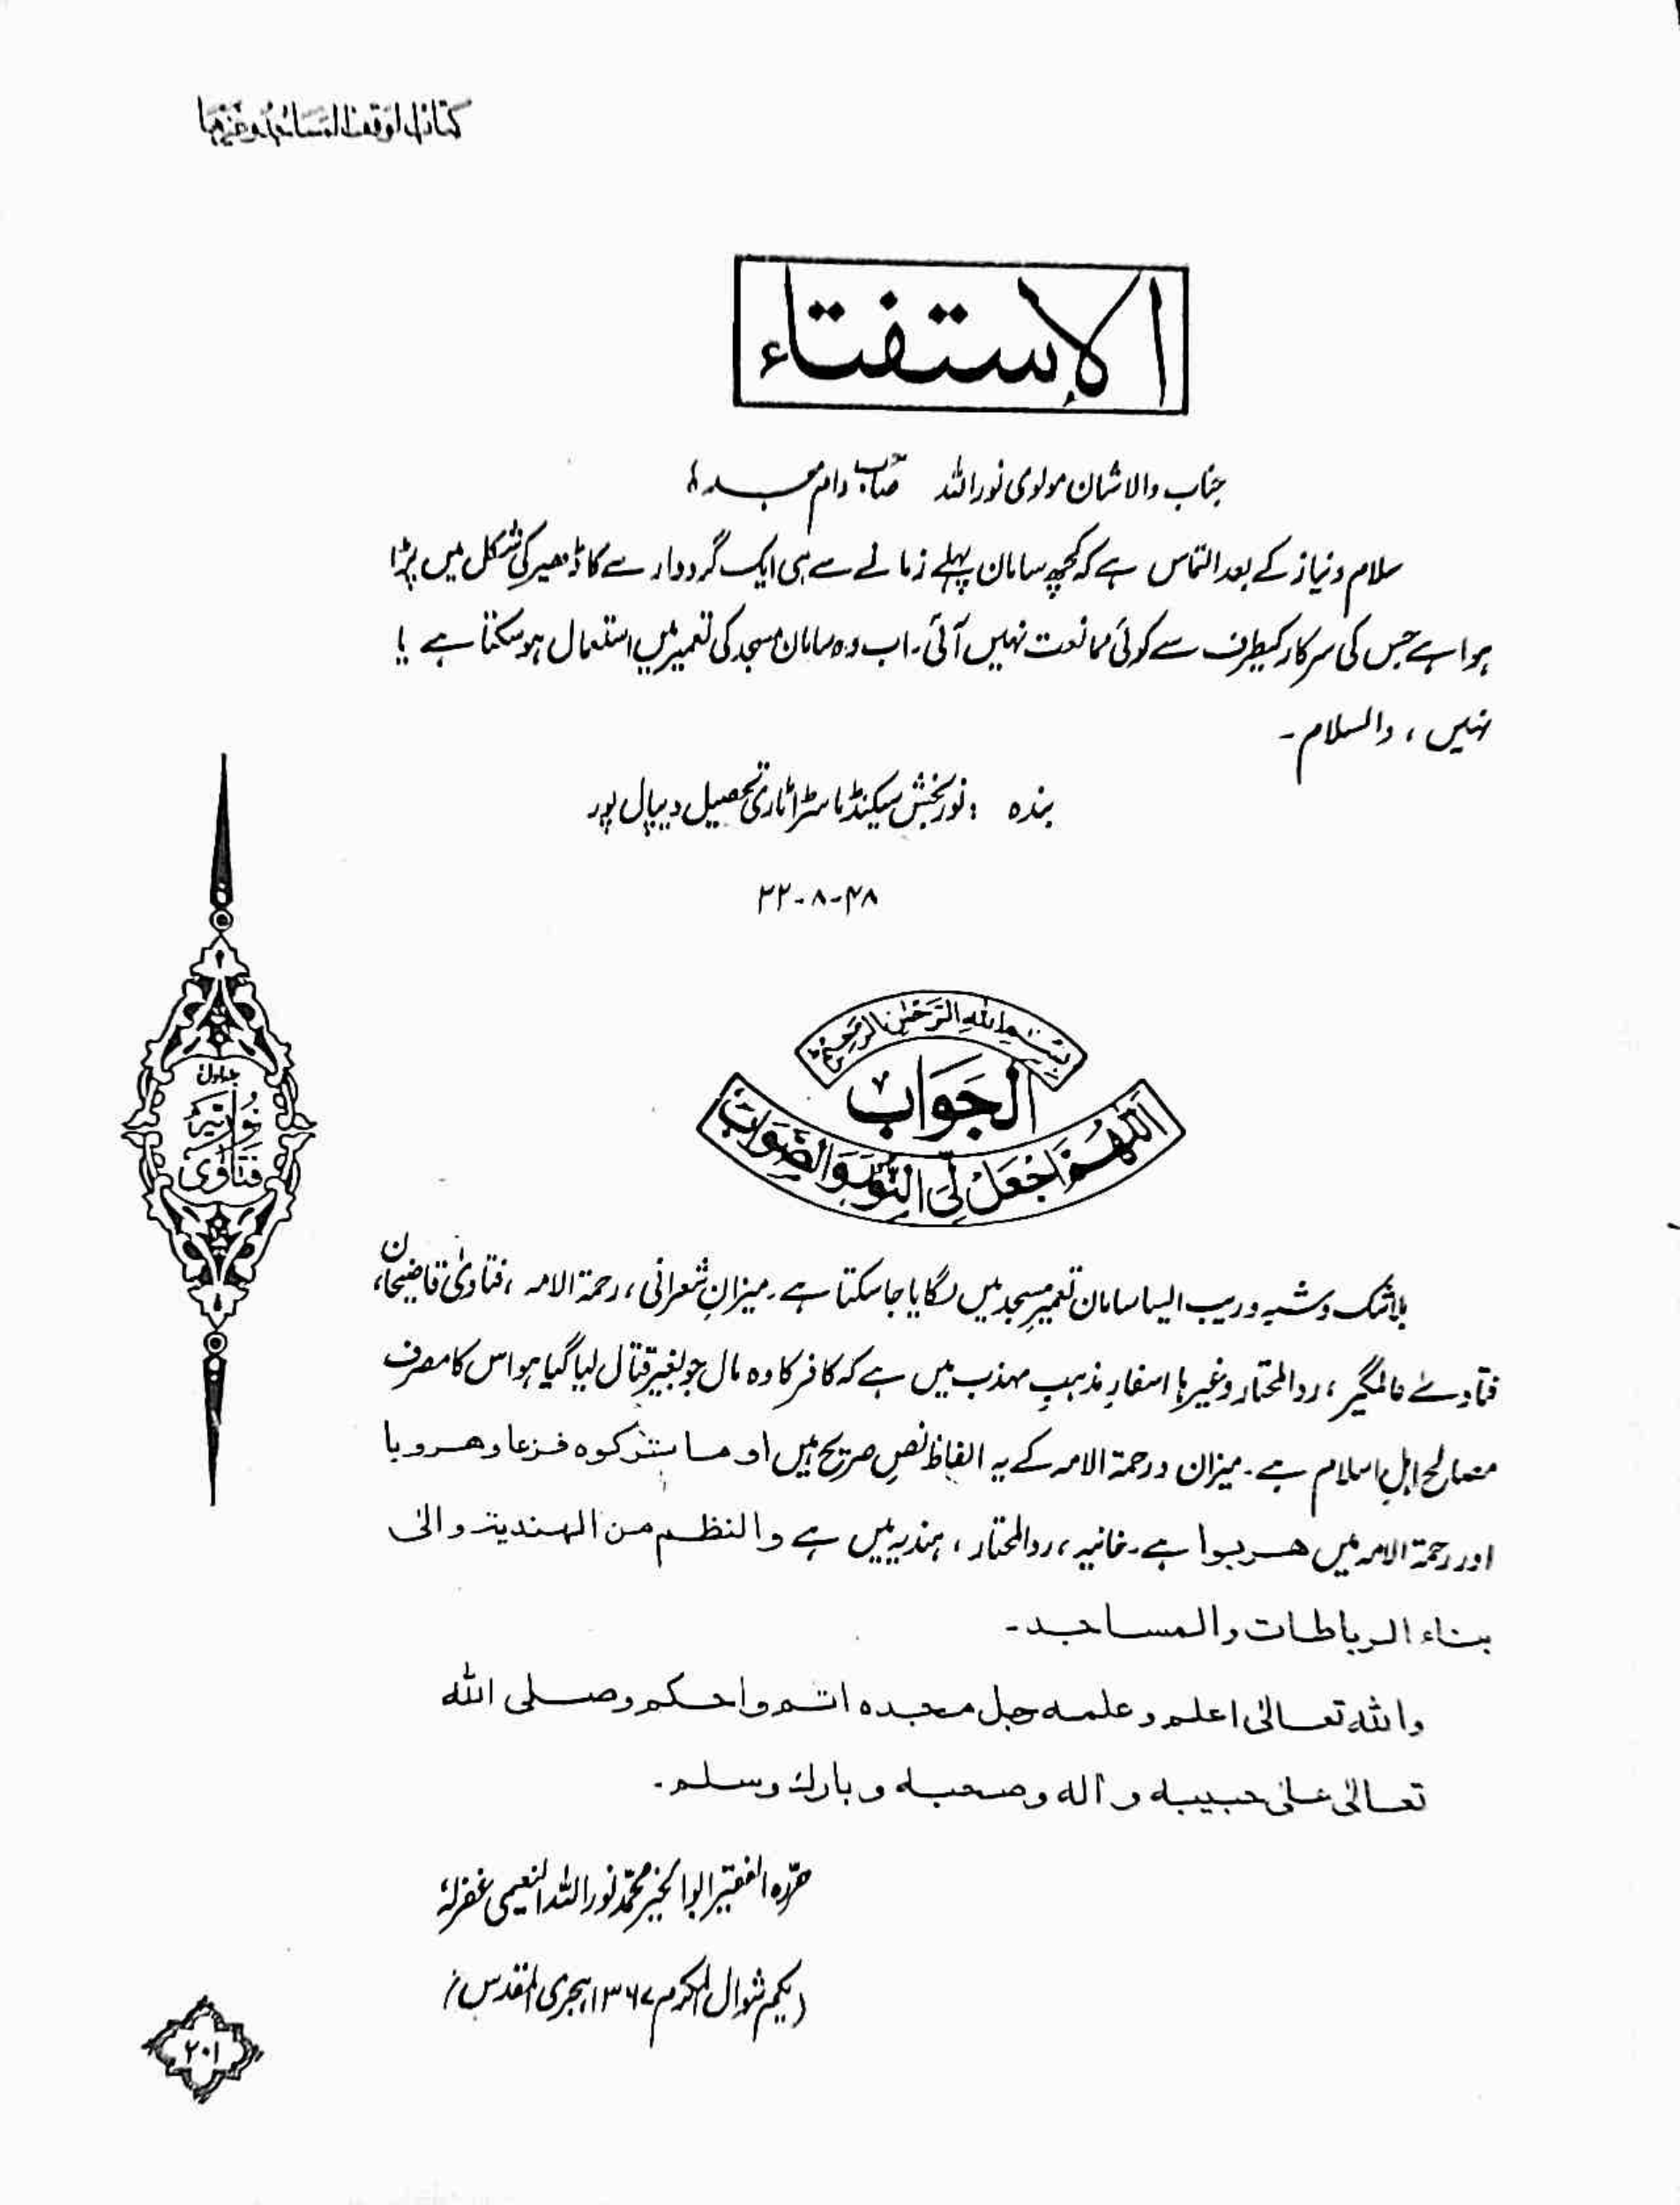 الإستفتاء
جناب والا شان مولوی نور اللہ صاحب دام مجدہ!
سلام و نیاز کے بعد التماس ہے کہ کچھ سامان پہلے زمانے سے ہی ایک گرودوارے کا ڈھیر کی شکل میں پڑا
ہوا ہے جس کی سرکار کیطرف سے کوئی ممانعت نہیں آئی۔ اب وہ سامان مسجد کی تعمیر میں استعمال ہو سکتا ہے یا
نہیں ، والسلام ۔
بندہ : نور بخش سیکنڈ ماسٹر اٹاری تحصیل دیپال پور
۲۲-۸-۴۸
بِسْمِ اللهِ الرَّحْمٰنِ الرَّحِيْمِ
الجَوَاب
اَللّٰهُمَّ اجْعَلْ لِّىَ النُّوْرَ وَالصَّوَابَ
بلاشک و شبہ و ریب ایسا سامان تعمیرِ مسجد میں لگایا جا سکتا ہے۔ میزانِ شعرانی ، رحمۃ الامہ ، فتاویٰ قاضیخان،
فتاوے عالمگیر ، ردالمحتار وغیرہا اسفارِ مذہبِ مہذب میں ہے کہ کافر کا وہ مال جو بغیر قتال لیا گیا ہو اس کا مصرف
مصالح اہلِ اسلام ہے۔ میزان و رحمۃ الامہ کے یہ الفاظ نصِ صریح ہیں او ما ترکوہ فزعا وھروبا
اور رحمۃ الامہ میں ھربوا ہے۔ خانیہ ، ردالمحتار ، ہندیہ میں ہے والنظم من الہندیۃ والیٰ
بناء الرباطات والمساجد۔
واللہ تعالیٰ اعلم وعلمہ جل مجدہ اتم واحکم وصلی اللہ
تعالیٰ علیٰ حبیبہ و آلہ وصحبہ و بارک وسلم۔
حررہ الفقیر ابوالخیر محمد نور اللہ النعیمی غفرلہٗ
(یکم شوال المکرم ۱۳۶۷ ہجری المقدس)
جلد اول
نُوریَّہ
فَتَاوٰی
۲۰۱